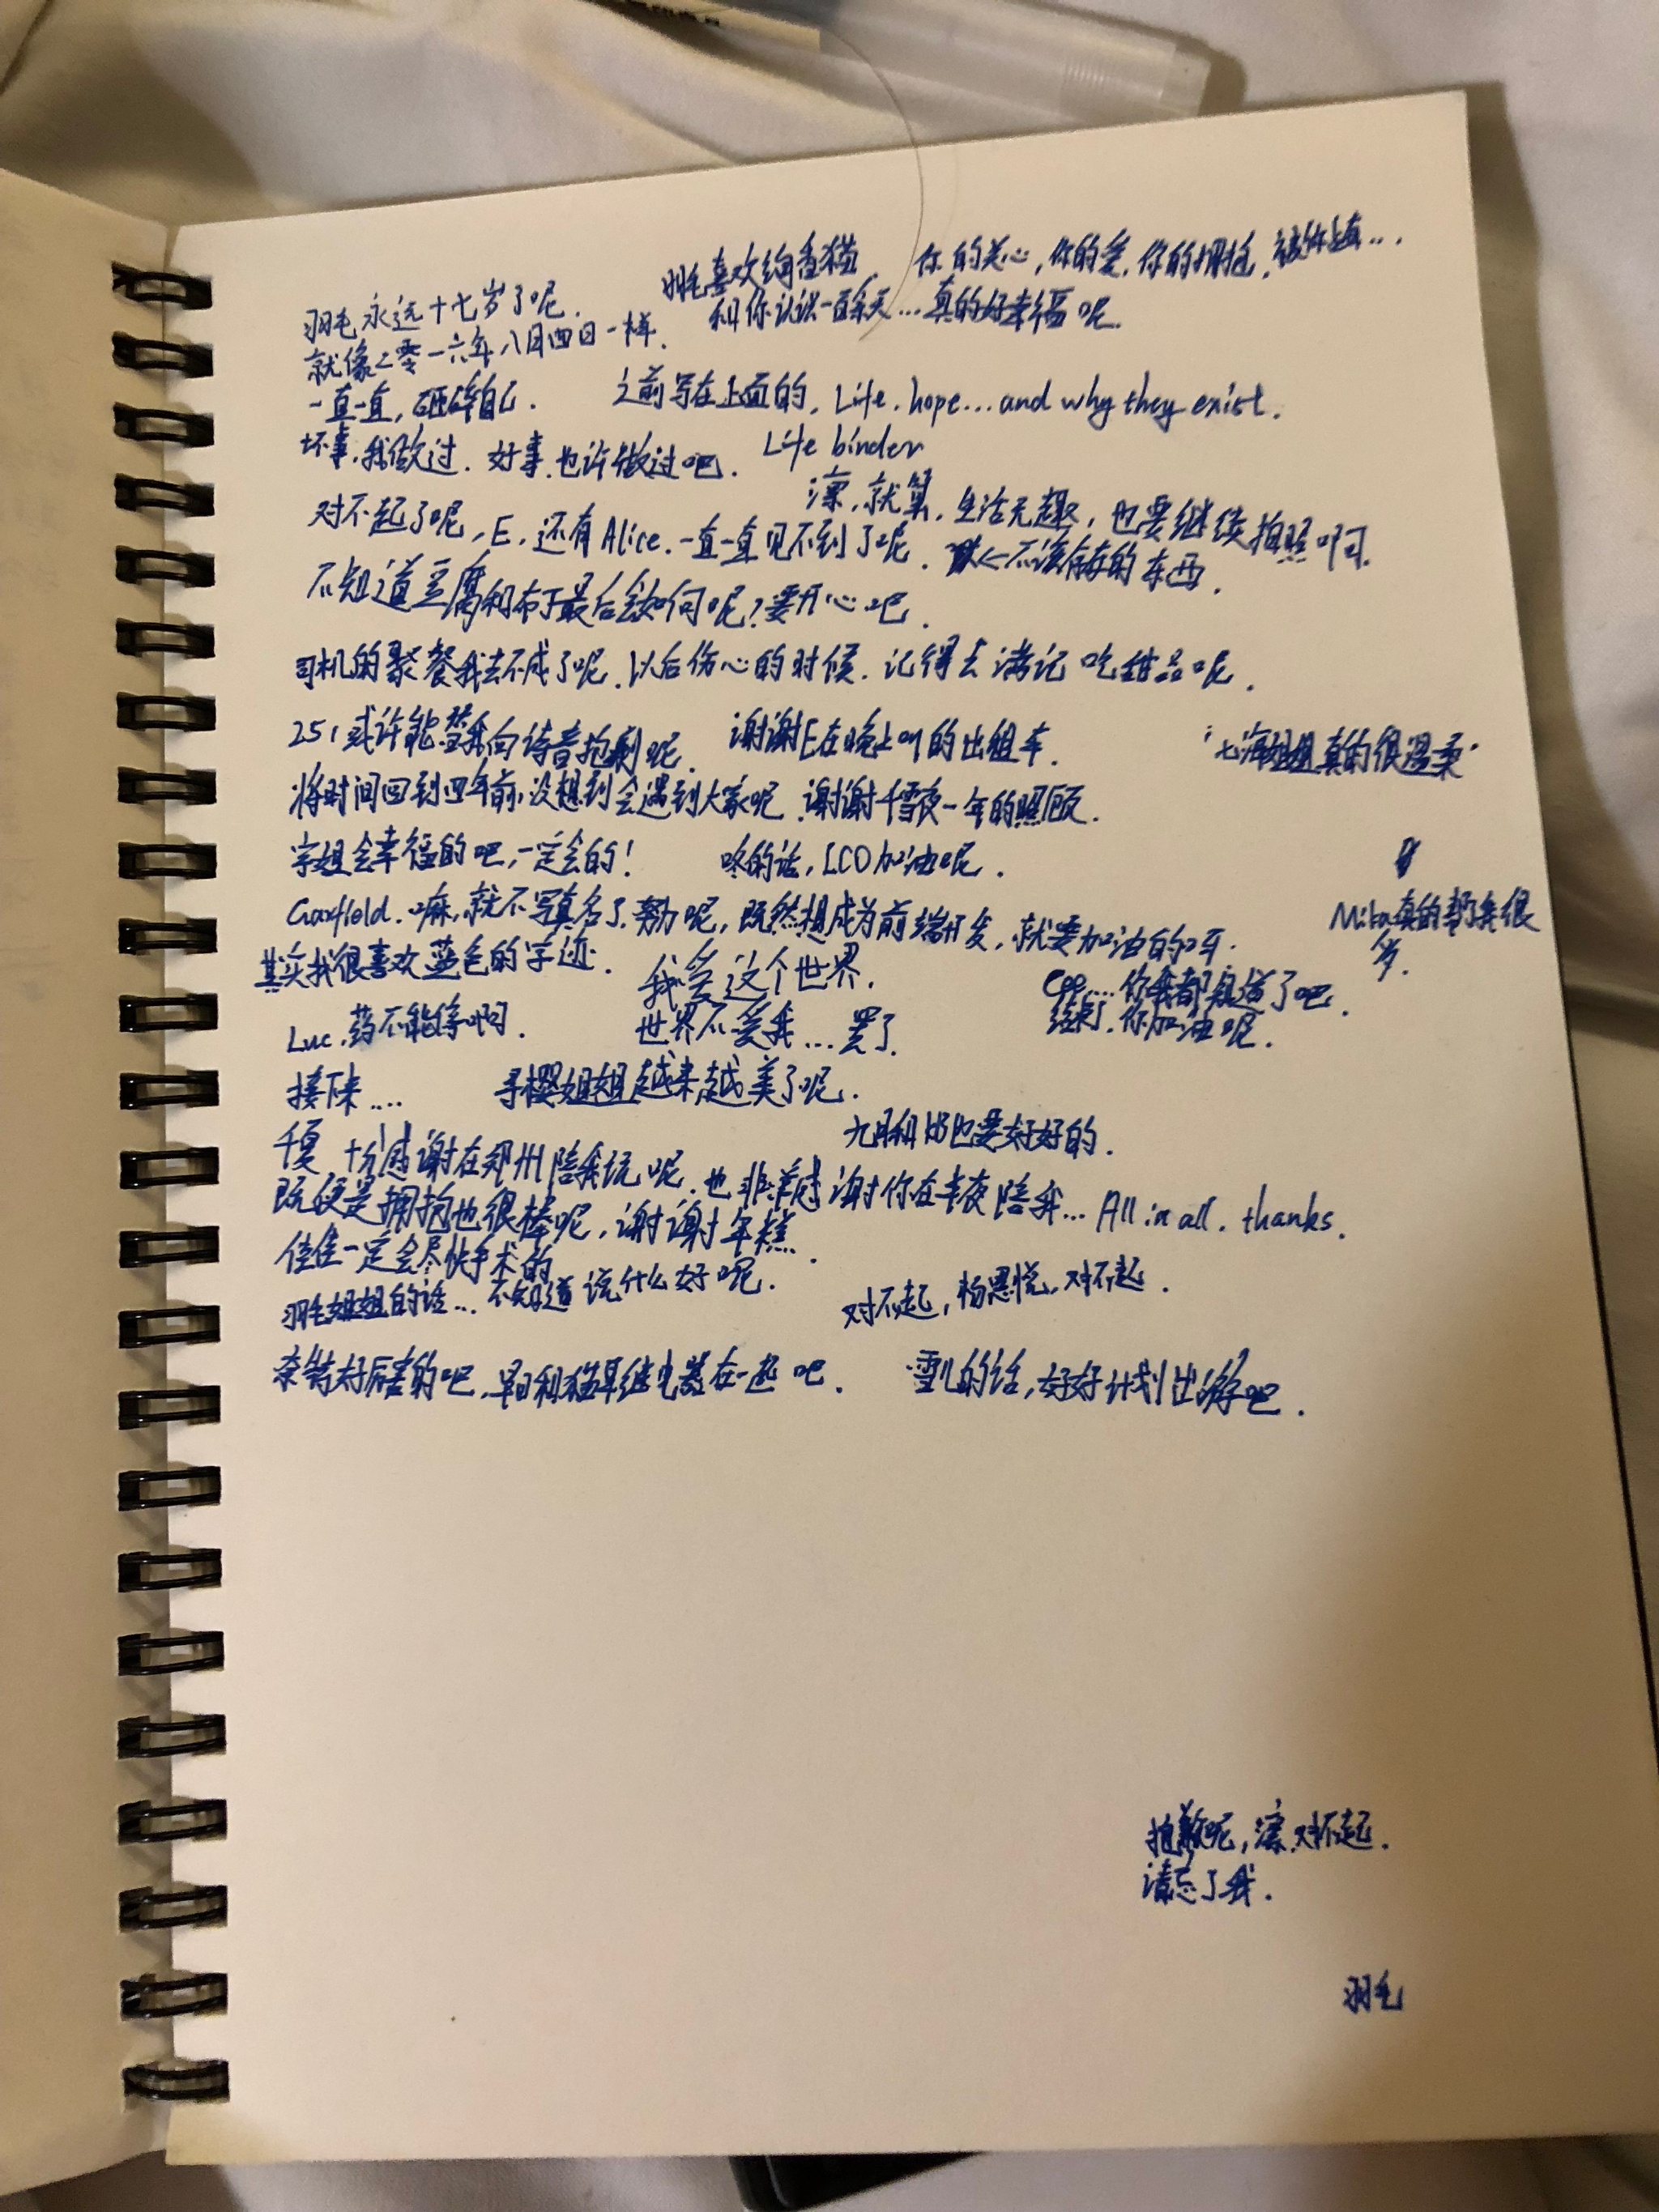 羽毛喜欢绚香猫. 你的关心,你的爱,你的拥抱,被你上…
和你认识一百余天…真的好幸福呢.
羽毛永远十七岁了呢.
就像二零一六年八月四日一样.
一直一直,砸碎自己. 之前写在上面的, Life, hope...and why they exist.
坏事,我做过. 好事,也许做过吧. Life binder
凛,就算,生活无趣,也要继续拍照啊.
对不起了呢,E,还有Alice.一直一直见不到了呢. <不该存在的东西.
不知道豆腐和布丁最后会如何呢?要开心吧.
司机的聚餐我去不成了呢.以后伤心的时候.记得去满记吃甜品呢.
251或许能替我向诗音抱歉呢. 谢谢E在晚上叫的出租车. "七海姐姐真的很温柔"
将时间回到四年前,没想到会遇到大家呢.谢谢千雪夜一年的照顾.
字姐会幸福的吧,一定会的! 咚的话,LCO加油呢.
Garfield.嘛,就不写真名了.努力呢,既然想成为前端开发,就要加油的呀.
Mika真的帮了我很
多.
其实我很喜欢蓝色的字迹. 我爱这个世界.
Cpp....你我都知道了吧.
Luc.药不能停啊. 世界不爱我...罢了. 结束了.你加油呢.
接下来.... 寻樱姐姐越来越美了呢.
九月和也要好好的.
千夏 十分感谢在郑州陪我玩呢.也非常感谢你在半夜陪我...All in all. thanks.
既便是拥抱也很棒呢,谢谢年糕.
佳佳一定会尽快手术的
羽毛姐姐的话...不知道说什么好呢. 对不起,杨恩悦,对不起.
奈特好厉害的吧.早日和猫耳继电器在一起吧. 雪儿的话,好好计划出游吧.
抱歉呢,凛.对不起.
请忘了我.
羽毛